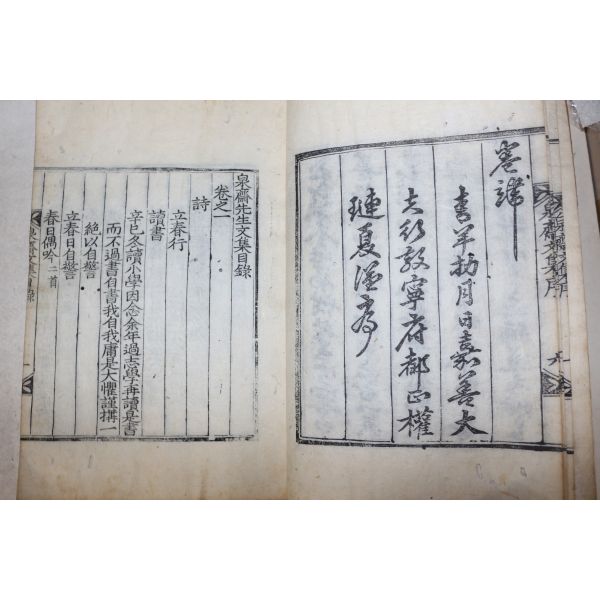 羊月日嘉善大
夫行敦寧府都正權
璉夏謹序
九
泉齋先生文集目錄
卷之一
詩
立春行
讀書
辛巳冬讀小學因念余年過志學再讀是書
而不過書自書我自我庸是大懼謹搆一
絶以自警
立春日自警
春日偶吟 二首